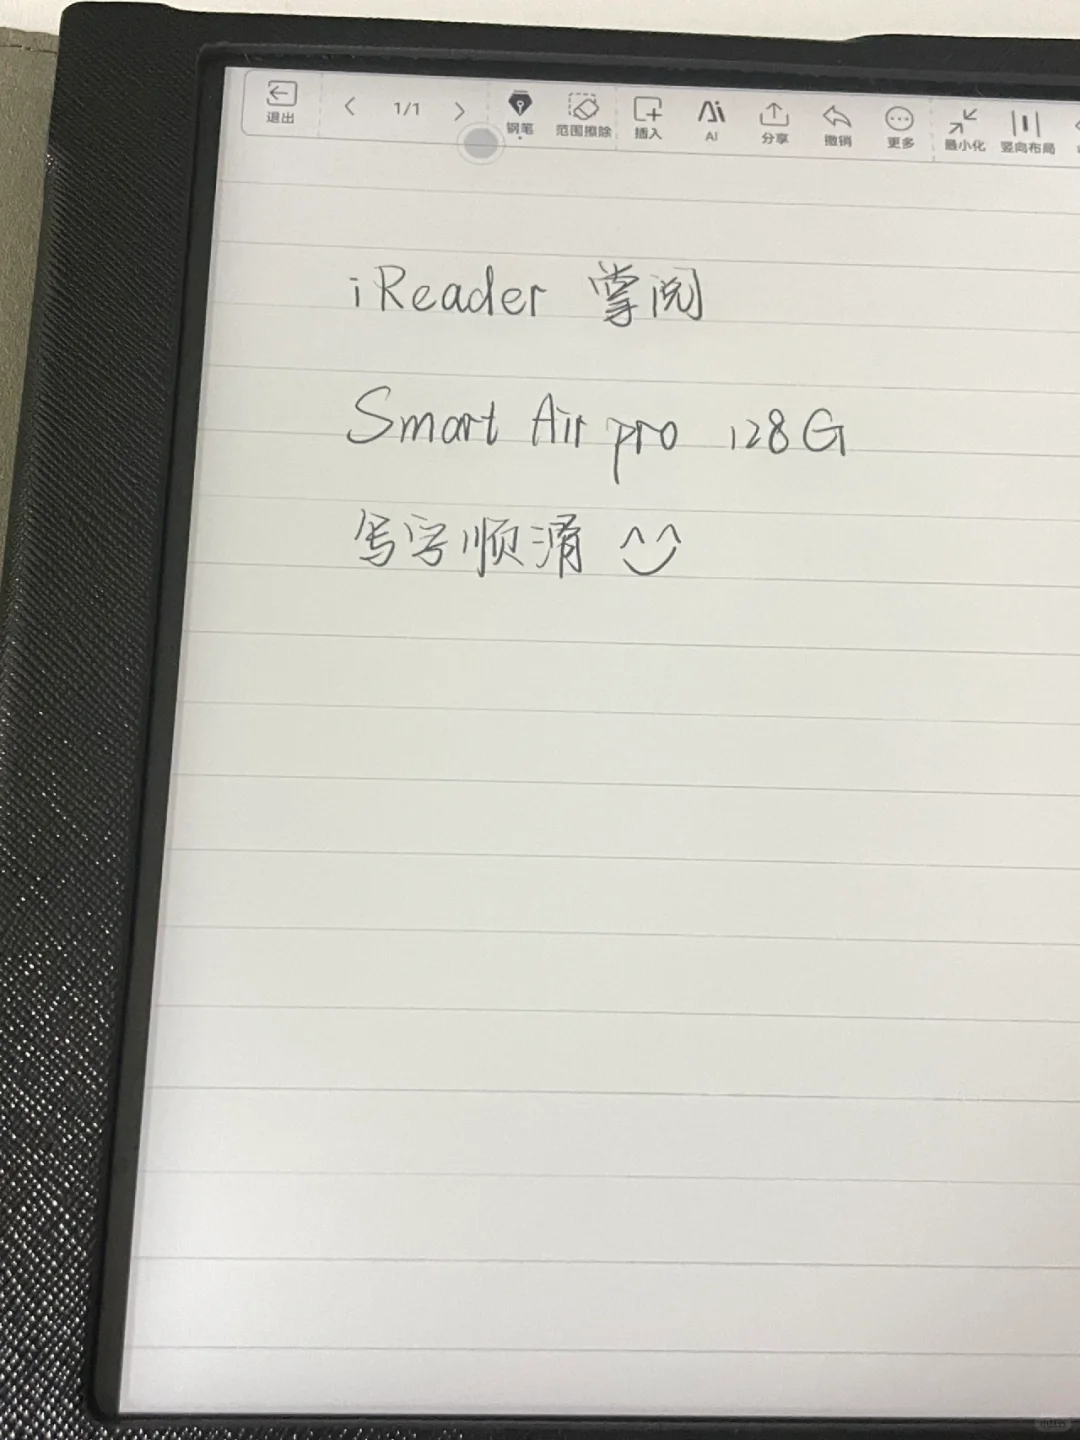 退出 1/1 钢笔 范围擦除 插入 AI 分享 撤销 更多 最小化 竖向布局
iReader 掌阅
Smart Air pro 128G
写字顺滑